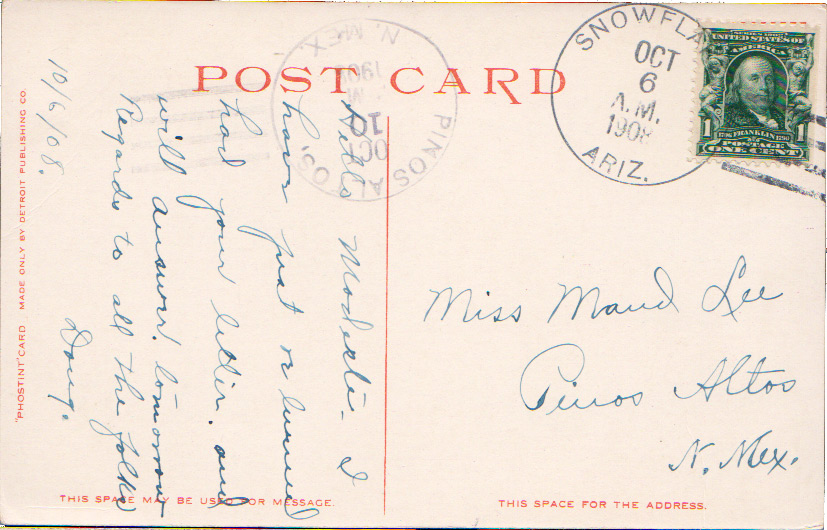 POST CARD
SNOWFLA
OCT
6
A.M.
1908
ARIZ.
SERIES 1902
UNITED STATES OF
AMERICA
1 1
FRANKLIN
POSTAGE
ONE CENT
PINOS ALTOS,
N. MEX.
OCT
10
1908
10/6/08.
Hello Modesti- I
have just returned
had your letter. and
will answer. tomorrow
Regards to all the folks
Doug.
Miss Maud Lee
Pinos Altos
N. Mex.
"PHOSTINT" CARD MADE ONLY BY DETROIT PUBLISHING CO.
THIS SPACE MAY BE USED FOR MESSAGE.
THIS SPACE FOR THE ADDRESS.